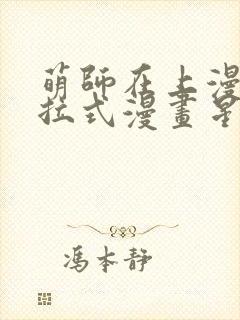 萌師在上漫
拉式漫畫星
馮本靜